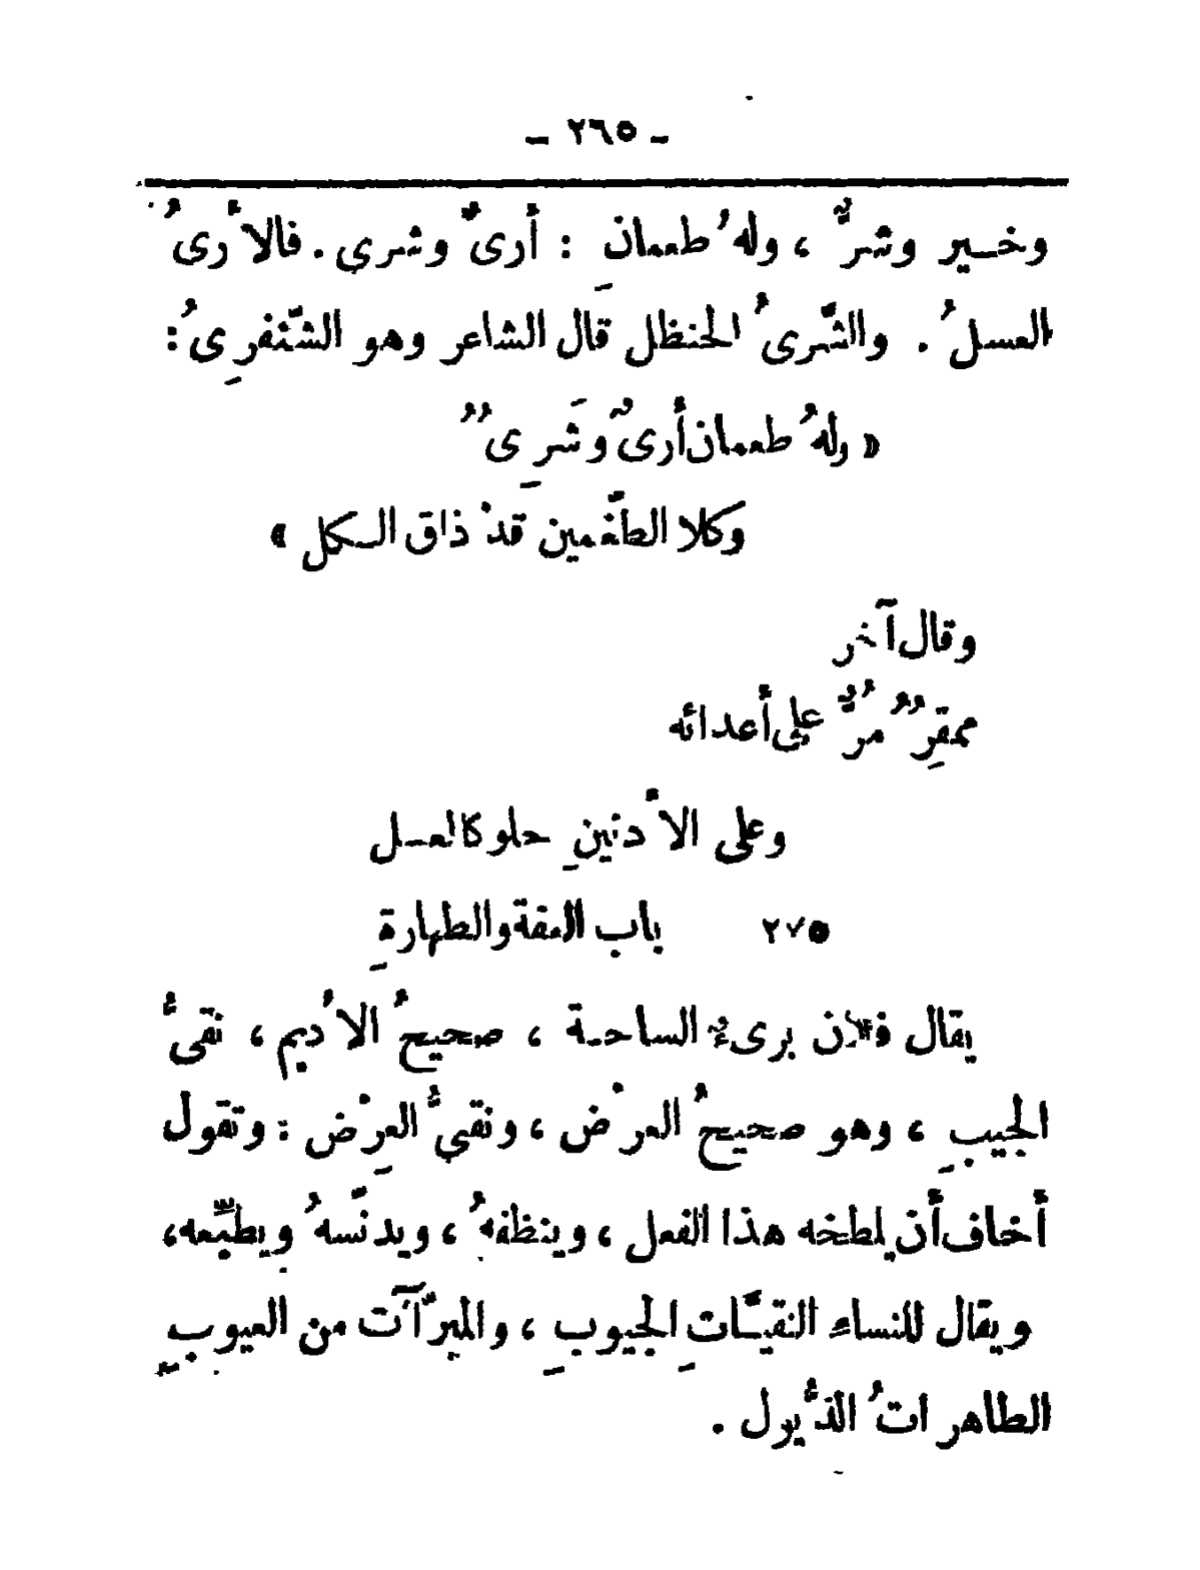 - ٢٦٥ -
وخير وشرٌّ ، ولهُ طعمانِ : أرىٌ وشرى . فالأرىُ
العسلُ . والشَّرىُ الحنظل قال الشاعر وهو الشَّنفرِىُ :
« ولهُ طعمان أرىٌ وشَرِىٌ
وكلا الطَّعمين قدْ ذاق الكل »
وقال آخر
ممقِرٌ مُرٌّ على أعدائه
وعلى الأدنينِ حلو كالعسل
٢٧٥ باب العفة والطهارةِ
يقال فلان برىءٌ الساحة ، صحيحُ الأُديم ، نقىُّ
الجيبِ ، وهو صحيحُ العرْض ، ونقيُّ العِرْض : وتقول
أخاف أن يلطخه هذا الفعل ، وينظفهُ ، ويدنَّسهُ ويطبِّعه ،
ويقال للنساء النقيَّاتِ الجيوبِ ، والمبرَّآت من العيوبِ
الطاهراتُ الذُّيول .